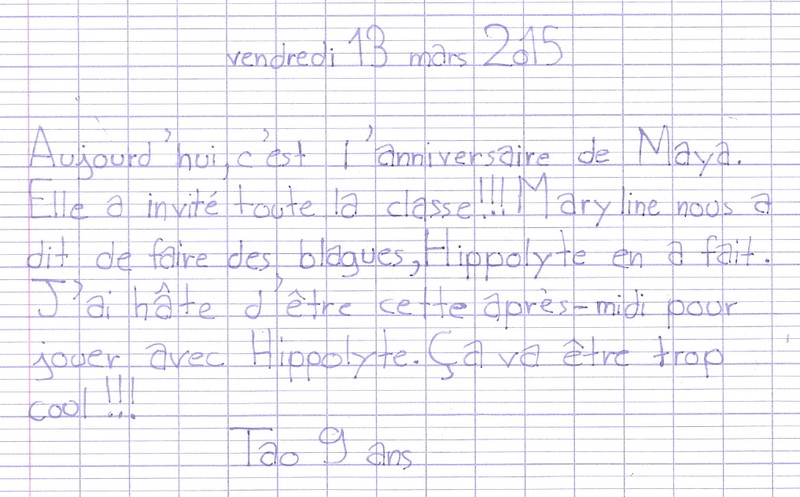 vendredi 13 mars 2015
Aujourd'hui, c'est l'anniversaire de Maya.
Elle a invité toute la classe!!! Maryline nous a
dit de faire des blagues, Hippolyte en a fait.
J'ai hâte d'être cette après-midi pour
jouer avec Hippolyte. Ça va être trop
cool!!!
Tao 9 ans